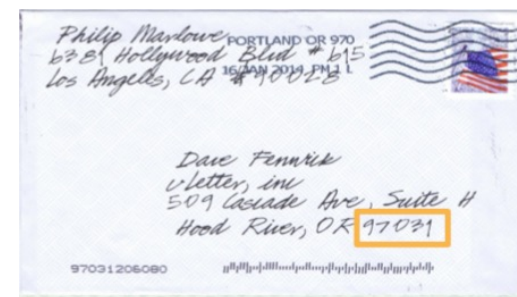 Philip Marlowe
6381 Hollywood Blvd # 615
Los Angeles, CA # 90028
PORTLAND OR 970
16 JAN 2014 PM 1 L
Dave Fennick
vLetter, inc
509 Cascade Ave, Suite H
Hood River, OR 97031
97031206080